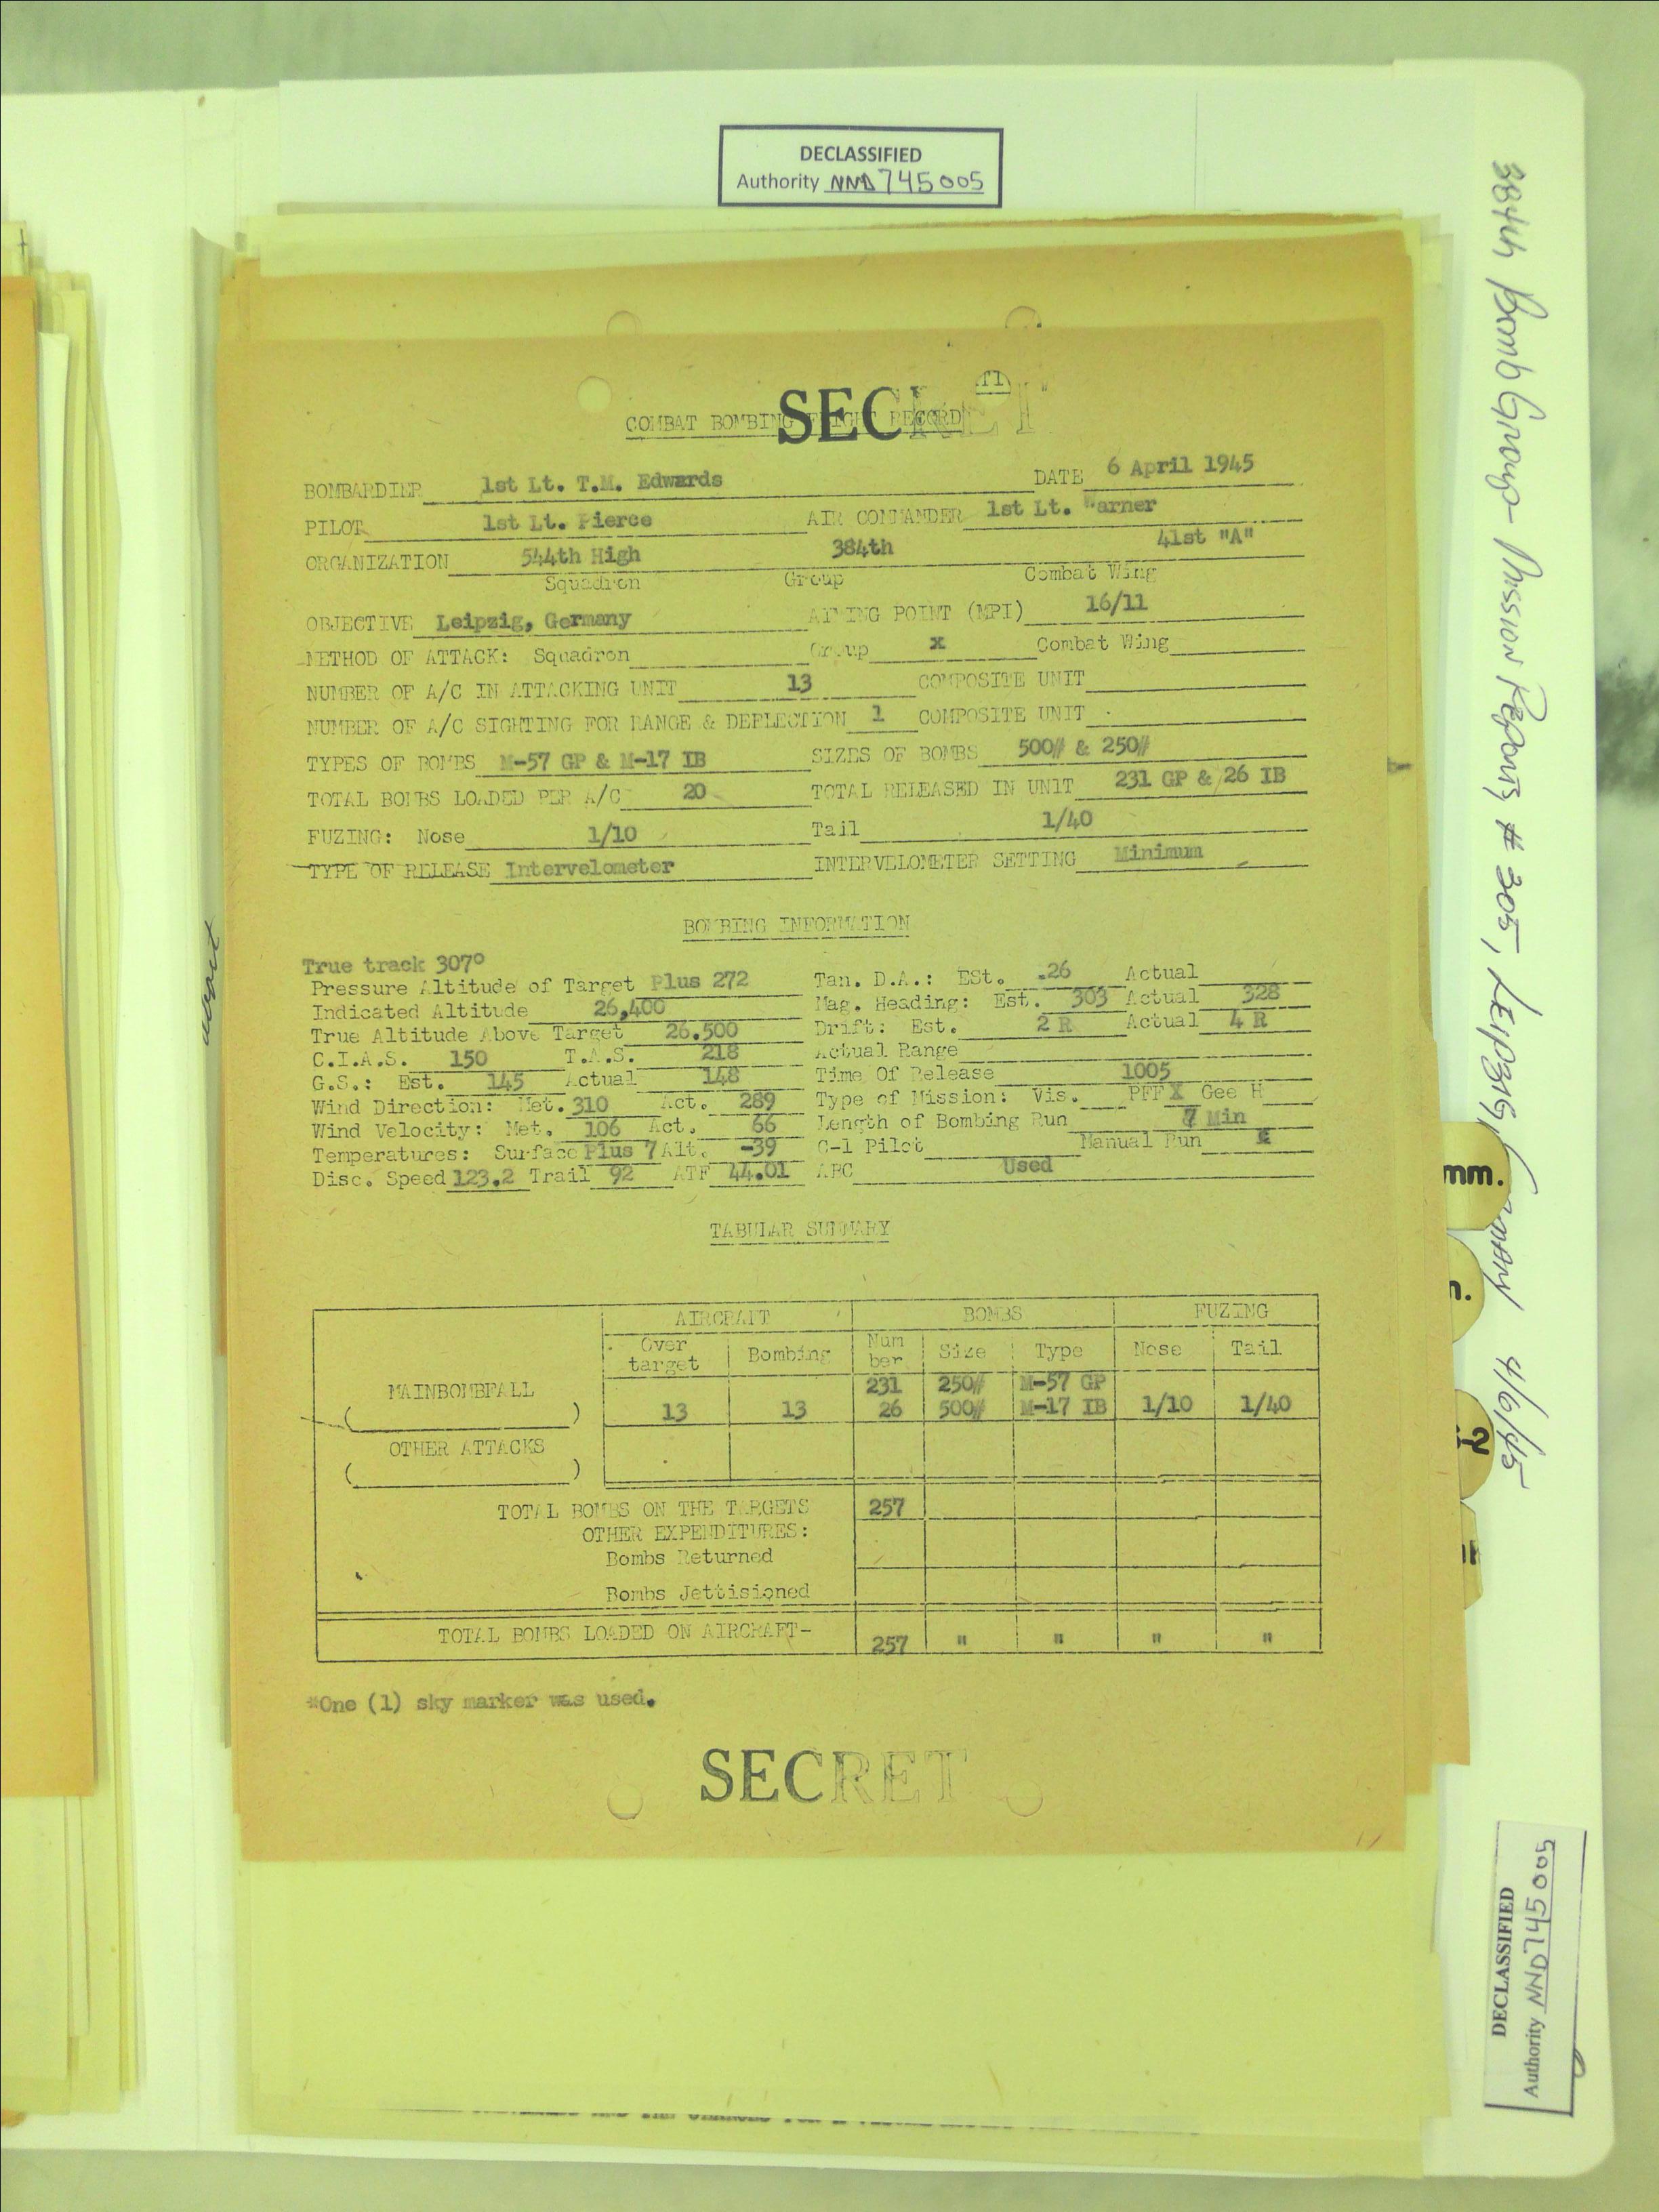 DECLASSIFIED
Authority NND 745005
SECRET
COMBAT BOMBING FLIGHT RECORD
BOMBARDIER 1st Lt. T.M. Edwards DATE 6 April 1945
PILOT 1st Lt. Pierce AIR COMMANDER 1st Lt. Warner
ORGANIZATION 544th High 384th 41st "A"
Squadron Group Combat Wing
OBJECTIVE Leipzig, Germany AIMING POINT (MPI) 16/11
METHOD OF ATTACK: Squadron Group X Combat Wing
NUMBER OF A/C IN ATTACKING UNIT 13 COMPOSITE UNIT
NUMBER OF A/C SIGHTING FOR RANGE & DEFLECTION 1 COMPOSITE UNIT
TYPES OF BOMBS M-57 GP & M-17 IB SIZES OF BOMBS 500# & 250#
TOTAL BOMBS LOADED PER A/C 20 TOTAL RELEASED IN UNIT 231 GP & 26 IB
FUZING: Nose 1/10 Tail 1/40
TYPE OF RELEASE Intervelometer INTERVELOMETER SETTING Minimum
BOMBING INFORMATION
True track 307°
Pressure Altitude of Target Plus 272 Tan. D.A.: Est. .26 Actual
Indicated Altitude 26,400 Mag. Heading: Est. 303 Actual 328
True Altitude Above Target 26.500 Drift: Est. 2 R Actual 4 R
C.I.A.S. 150 T.A.S. 218 Actual Range
G.S.: Est. 145 Actual 148 Time Of Release 1005
Wind Direction: Met. 310 Act. 289 Type of Mission: Vis. PFF X Gee H
Wind Velocity: Met. 106 Act. 66 Length of Bombing Run 7 Min
Temperatures: Surface Plus 7 Alt. -39 C-1 Pilot Manual Run
Disc. Speed 123.2 Trail 92 ATF 44.01 ABC Used
TABULAR SUMMARY
AIRCRAFT BOMBS FUZING
Over target Bombing Num ber Size Type Nose Tail
MAINBOMBFALL 231 250# M-57 GP
( ) 13 13 26 500# M-17 IB 1/10 1/40
OTHER ATTACKS
( )
TOTAL BOMBS ON THE TARGETS 257
OTHER EXPENDITURES:
Bombs Returned
Bombs Jettisioned
TOTAL BOMBS LOADED ON AIRCRAFT- 257 " " " "
*One (1) sky marker was used.
SECRET
384th Bomb Group - Mission Reports # 305, Leipzig, Germany 4/6/45
mm.
DECLASSIFIED
Authority NND 745005